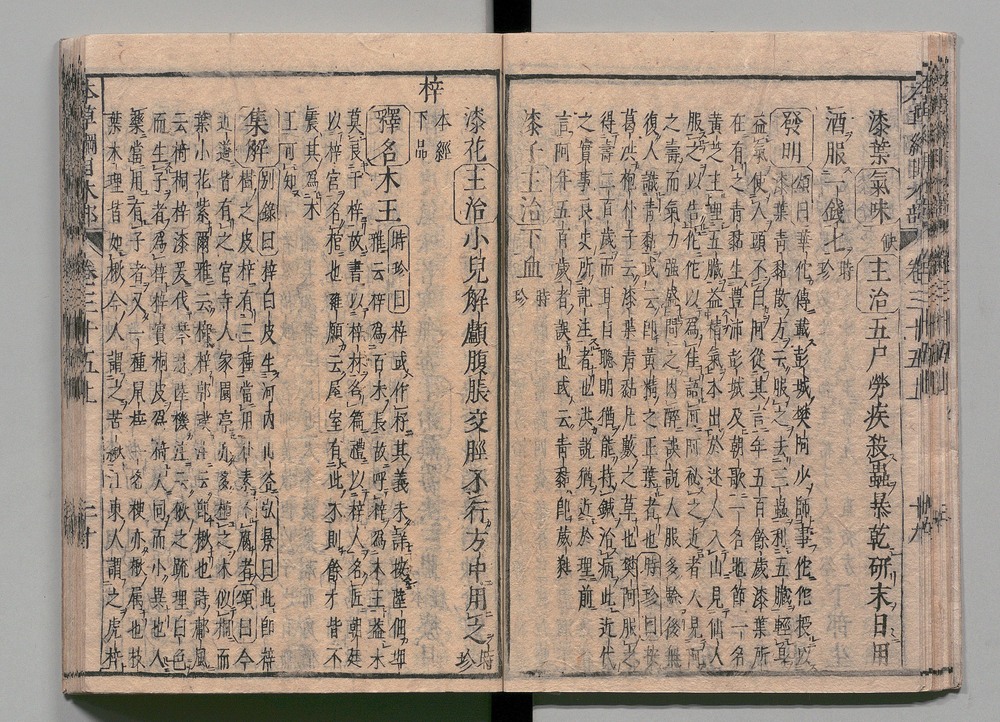 漆葉氣味缺主治五尸勞疾殺蟲暴乾研末日用
酒服一錢匕時珍
發明頌曰華佗傳載彭城樊阿少師事佗佗授以
漆葉青黏散方云服之去三蟲利五臟輕身
益氣使人頭不白阿從其言年五百餘歲漆葉所
在有之青黏生豐沛彭城及朝歌一名地節一名
黃芝主理五臟益精氣本出於迷人入山見仙人
服之以告佗佗以為佳語阿阿秘之近者人見阿
之壽而氣力強盛問之因醉誤説人服多驗後無
復人識青黏或云即黃精之正葉者也時珍曰按
葛洪抱朴子云漆葉青黏凡藪之草也樊阿服之
得壽二百歲而耳目聰明猶能持鍼治病此近代
之實事良史所記注者也洪説猶近於理前
言阿年五百歲者誤也或云青黏即葳蕤
漆子主治下血時珍
漆花主治小兒解顱腹脹交脛不行方中用之時珍
梓本經下品
釋名木王時珍曰梓或作杍其義未詳按陸佃埤
雅云梓為百木長故呼梓為木王蓋木
莫良于梓故書以梓材名篇禮以梓人名匠朝廷
以梓宮名棺也羅願云屋室有此木則餘材皆不
震其為木
王可知
集解別錄曰梓白皮生河内山谷弘景曰此即梓
樹之皮梓有三種當用朴素不腐者頌曰今
近道皆有之宮寺人家園亭亦多植之木似桐而
葉小花紫爾雅云椅梓郭璞注云即楸也詩鄘風
云椅桐梓漆爰伐琴瑟陸機注云楸之疏理白色
而生子者為梓梓實桐皮為椅大同而小異也入
藥當用有子者又一種鼠梓一名楰亦楸屬也枝
葉木理皆如楸今人謂之苦楸江東人謂之虎梓